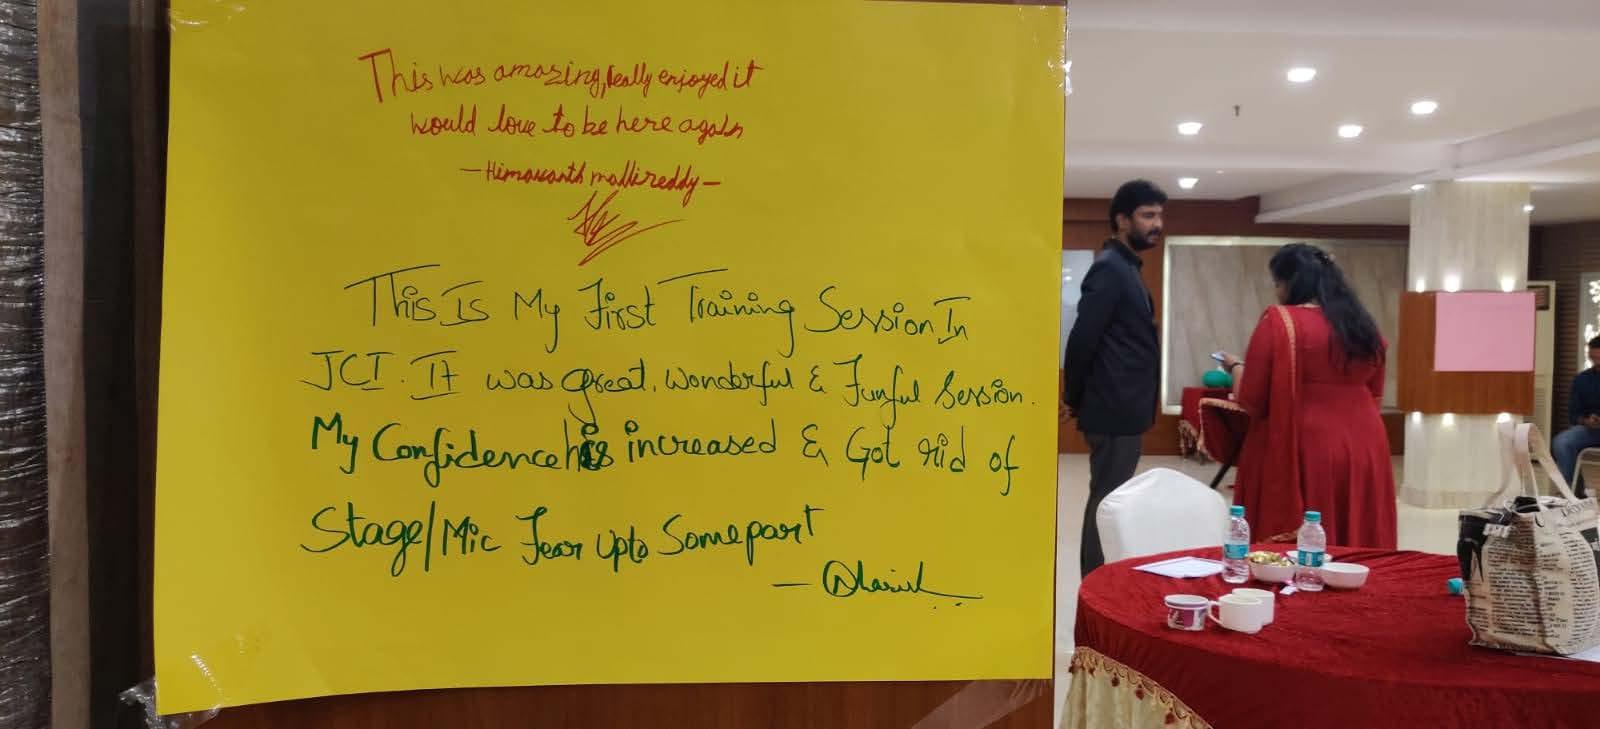 This was amazing, really enjoyed it
would love to be here again
— Himavanth mallireddy —
This Is My First Training Session In
JCI. It was great, wonderful & Funful Session.
My Confidence has increased & Got rid of
Stage/Mic Fear Upto Some part